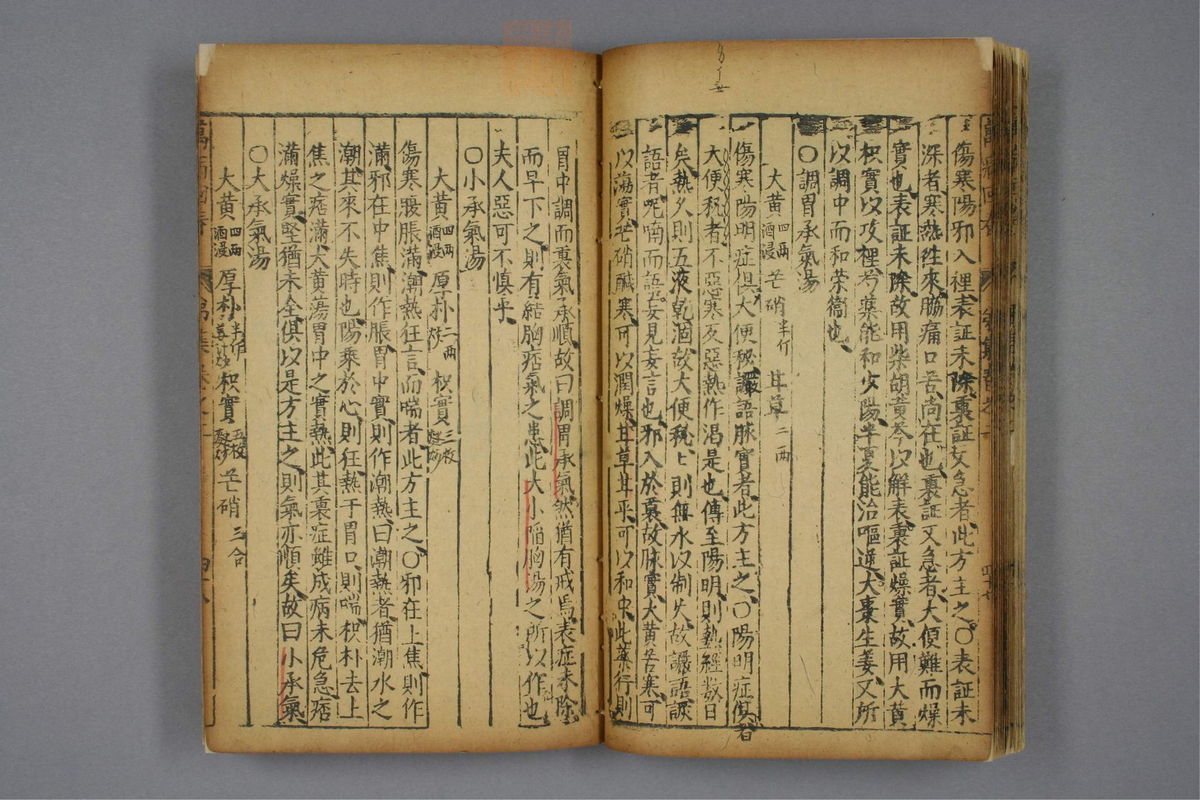 傷寒陽邪入裡表証未除裏証又急者此方主之〇表証未
深者寒熱往來脇痛口苦尚在也裏証又急者大便難而燥
實也表証未除故用柴胡黄芩以解表裏証燥實故用大黄
枳實以攻裡芍藥能和少陽半夏能治嘔逆大棗生姜又所
以調中而和榮衛也
〇調胃承氣湯
大黄四兩酒浸 芒硝半斤 甘草二兩
傷寒陽明症俱大便秘讝語脉實者此方主之〇陽明症俱者
大便秘者不惡寒反惡熱作渴是也傳至陽明則熱經数日
矣熱久則五液乾涸故大便秘上則無水以制火故讝語讝
語者呢喃而語妄見妄言也邪入於裏故脉實大黄苦寒可
以蕩實芒硝鹹寒可以潤燥甘草甘平可以和中此藥行則
胃中調而裏氣承順故曰調胃承氣然猶有戒焉表症未除
而早下之則有結胸痞氣之患此大小陷胸湯之所以作也
夫人惡可不慎乎
〇小承氣湯
大黄四兩酒浸 厚朴二兩 枳實三枚
傷寒腹脹滿潮熱狂言而喘者此方主之〇邪在上焦則作
滿邪在中焦則作脹胃中實則作潮熱曰潮熱者猶潮水之
潮其來不失時也陽乘於心則狂熱干胃口則喘枳朴去上
焦之痞滿大黄蕩胃中之實熱此其裏症雖成病未危急痞
滿燥實堅猶未全俱以是方主之則氣亦順矣故曰小承氣
〇大承氣湯
大黄四兩酒浸 厚朴半斤姜炒 枳實五枚 芒硝三合